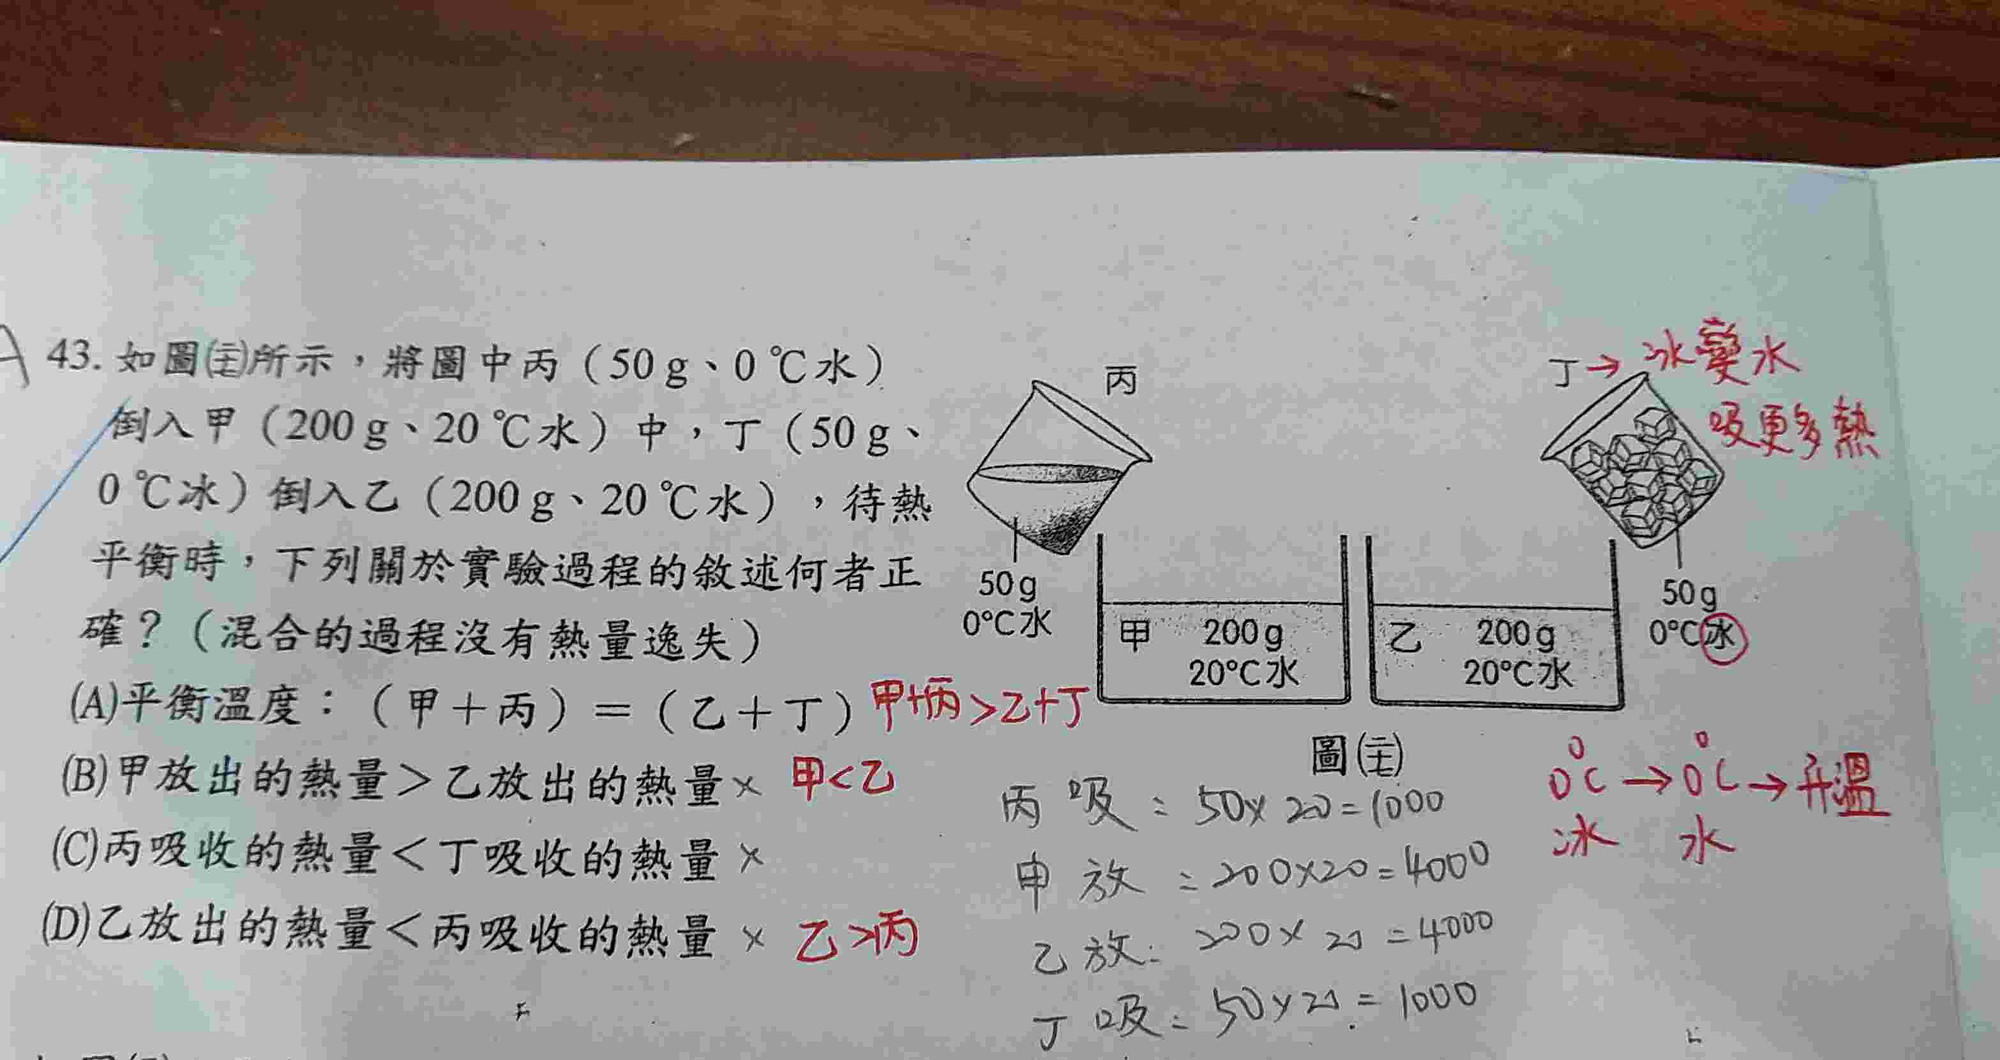 43. 如圖(𡈼)所示，將圖中丙（50 g、0 ℃水）
倒入甲（200 g、20 ℃水）中，丁（50 g、
0 ℃冰）倒入乙（200 g、20 ℃水），待熱
平衡時，下列關於實驗過程的敘述何者正
確？（混合的過程沒有熱量逸失）
(A)平衡溫度：（甲＋丙）＝（乙＋丁） 甲+丙>乙+丁
(B)甲放出的熱量＞乙放出的熱量× 甲<乙
(C)丙吸收的熱量＜丁吸收的熱量×
(D)乙放出的熱量＜丙吸收的熱量× 乙>丙
丙
50g
0℃水
甲 200g
20℃水
乙 200g
20℃水
丁→冰變水
吸更多熱
50g
0℃冰
圖
丙吸：50×20=1000
甲放：200×20=4000
乙放：200×20=4000
丁吸：50×20=1000
0℃→0℃→升溫
冰 水